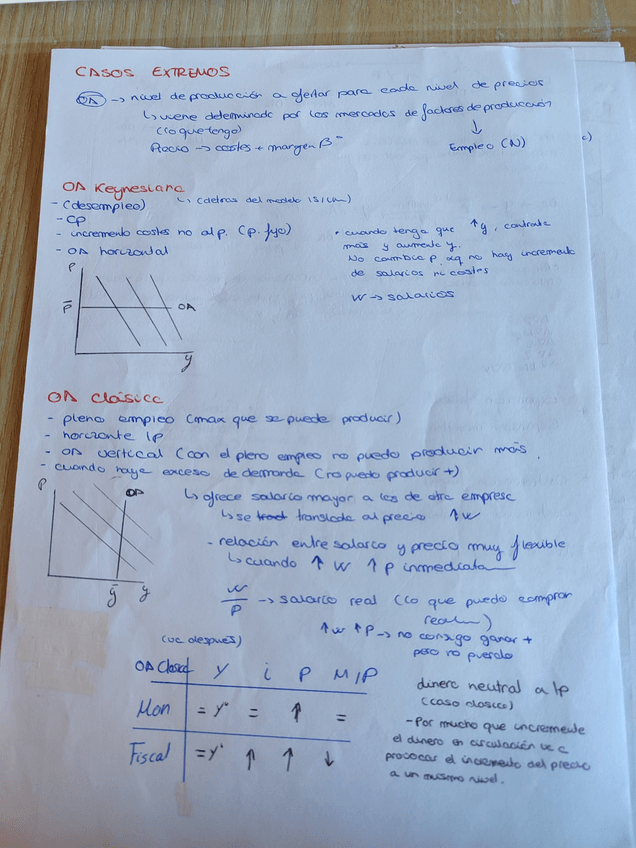 CASOS EXTREMOS
OA → nivel de producción a ofertar para cada nivel de precios
↳ viene determinado por los mercados de factores de producción
(lo que tengo) ↓
Precio → costes + margen Bº Empleo (N)
OA Keynesiana
- (desempleo) ↳ (detras del modelo IS/LM)
- CP
- incremento costes no al p. (p. fijo)
- OA horizontal
• cuando tenga que ↑y, contrata
mas y aumenta y.
No cambia P xq no hay incremento
de salarios ni costes
W → salarios
P
P̅ OA
y
OA Clásica
- pleno empleo (max que se puede producir)
- horizonte lp
- OA vertical (con el pleno empleo no puedo producir más.
- cuando haya exceso de demanda (no puedo producir +)
P OA
y̅ y
↳ ofrece salario mayor a los de otra empresa
↳ se translada al precio ↑w
- relación entre salario y precio muy flexible
↳ cuando ↑ W ↑ P inmediata
W/P → salario real (lo que puedo comprar
real)
↑w ↑P → no consigo ganar +
pero no pierdo
(va después)
OA Clasica Y i P M/P
Mon = y* = ↑ =
Fiscal = y* ↑ ↑ ↓
dinero neutral a lp
(caso clasico)
- Por mucho que incremente
el dinero en circulación va a
provocar el incremento del precio
a un mismo nivel.